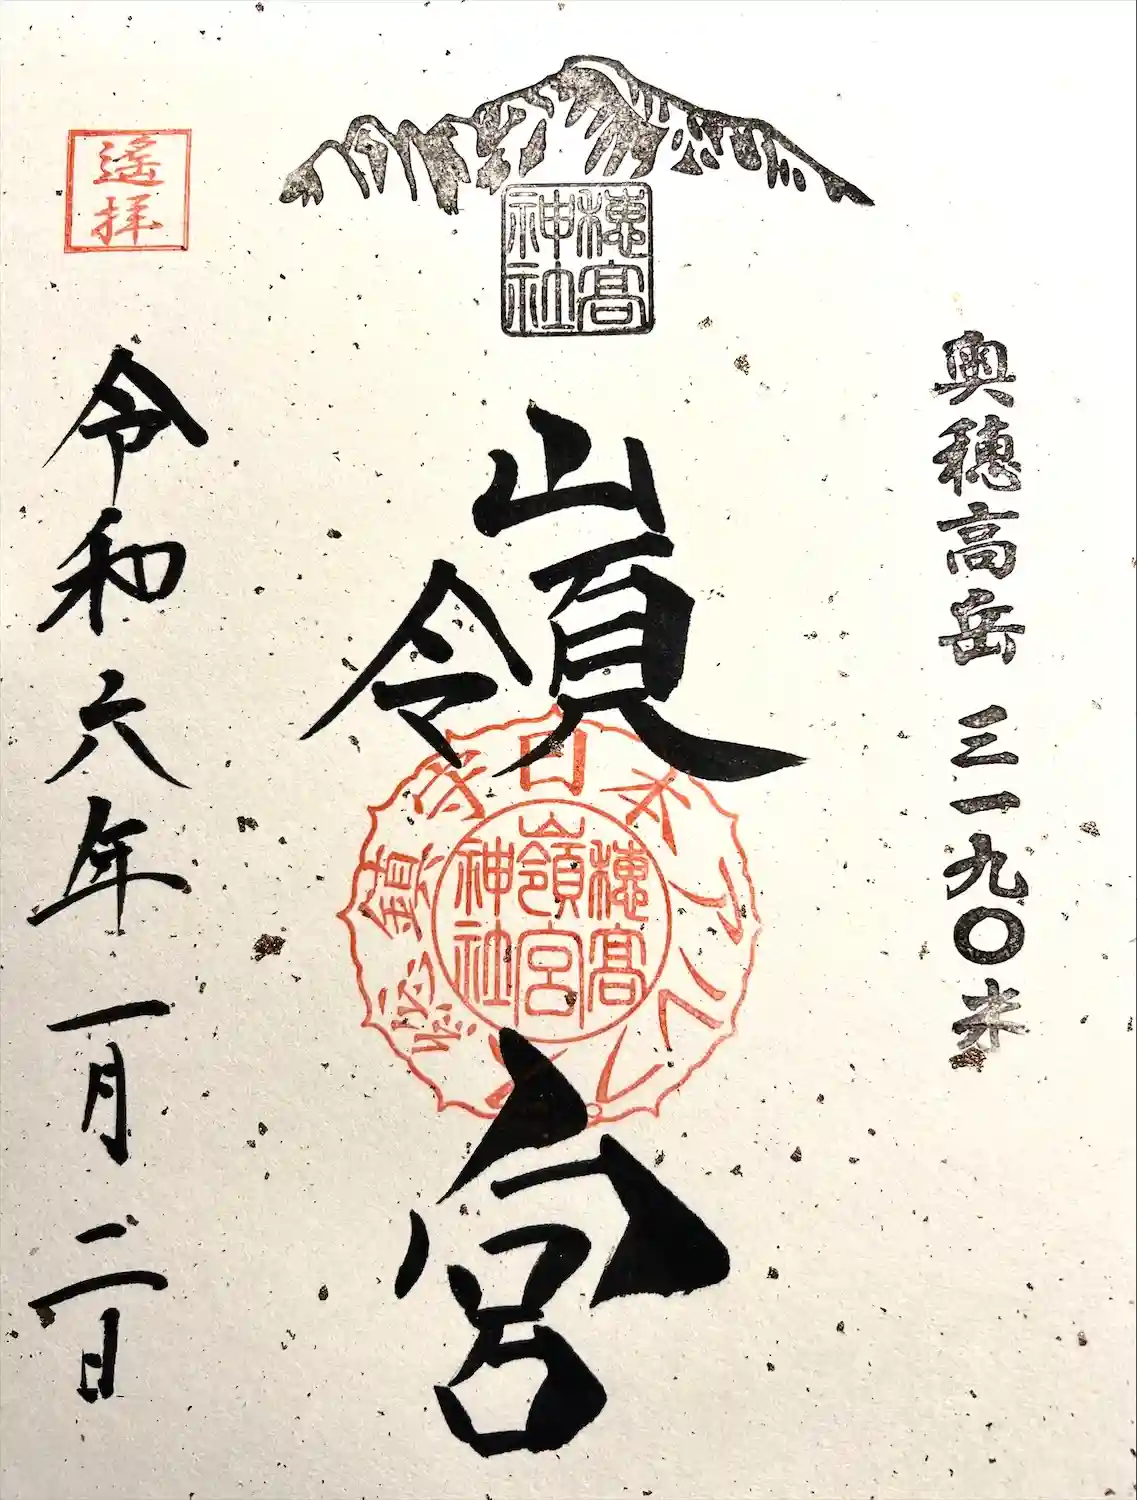 奥穂高岳 三一九〇米
穂高
神社
嶺宮
日本アルプス
総鎮守
穂高
嶺宮
神社
遙拝
令和六年一月二日